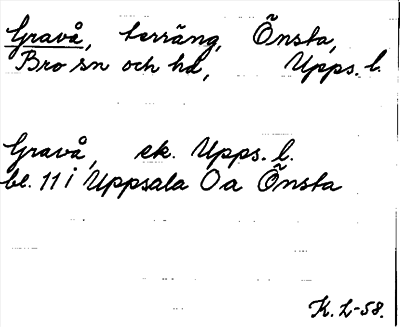 Gravå, terräng, Önsta,
Bro sn och hd, Upps. l.
Gravå, ek. Upps. l.
bl. 11 i Uppsala O a Önsta
K. L-58.